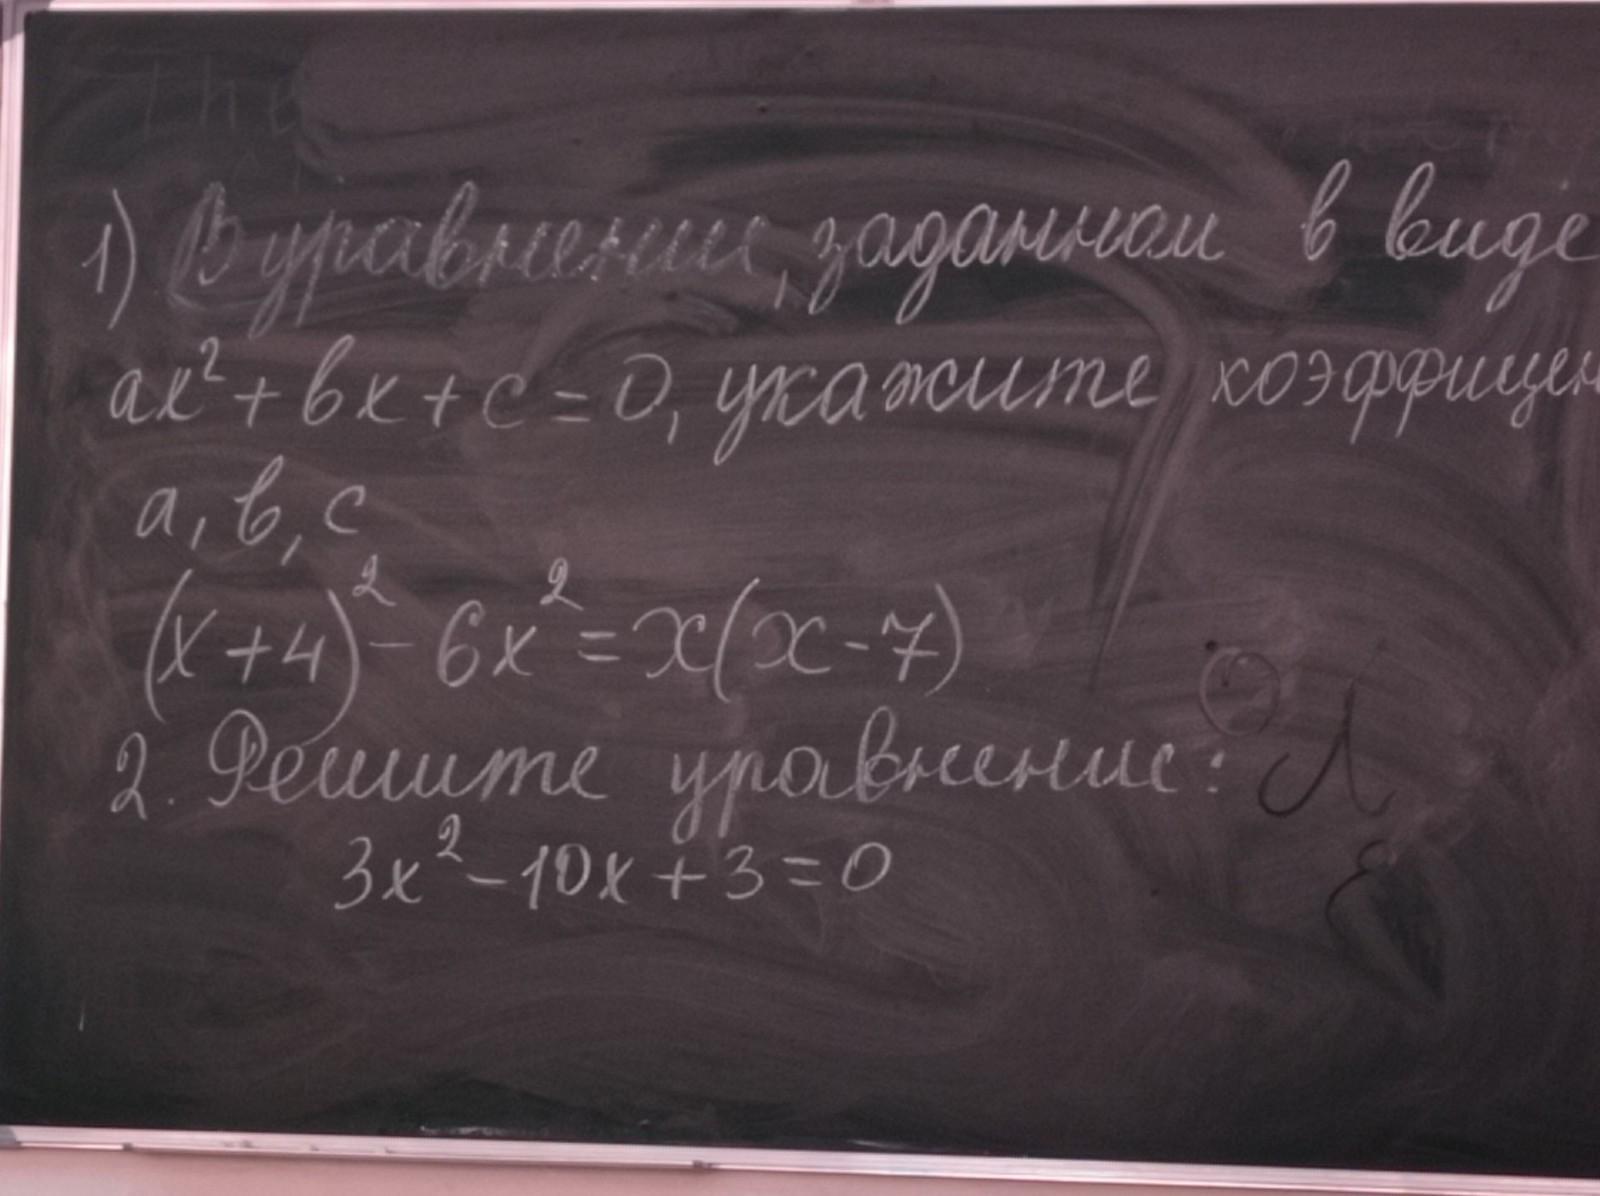 1) В уравнении, заданном в виде
ax² + bx + c = 0, укажите коэффицен
a, b, c
(x+4)² - 6x² = x(x-7)
2. Решите уравнение:
3x² - 10x + 3 = 0